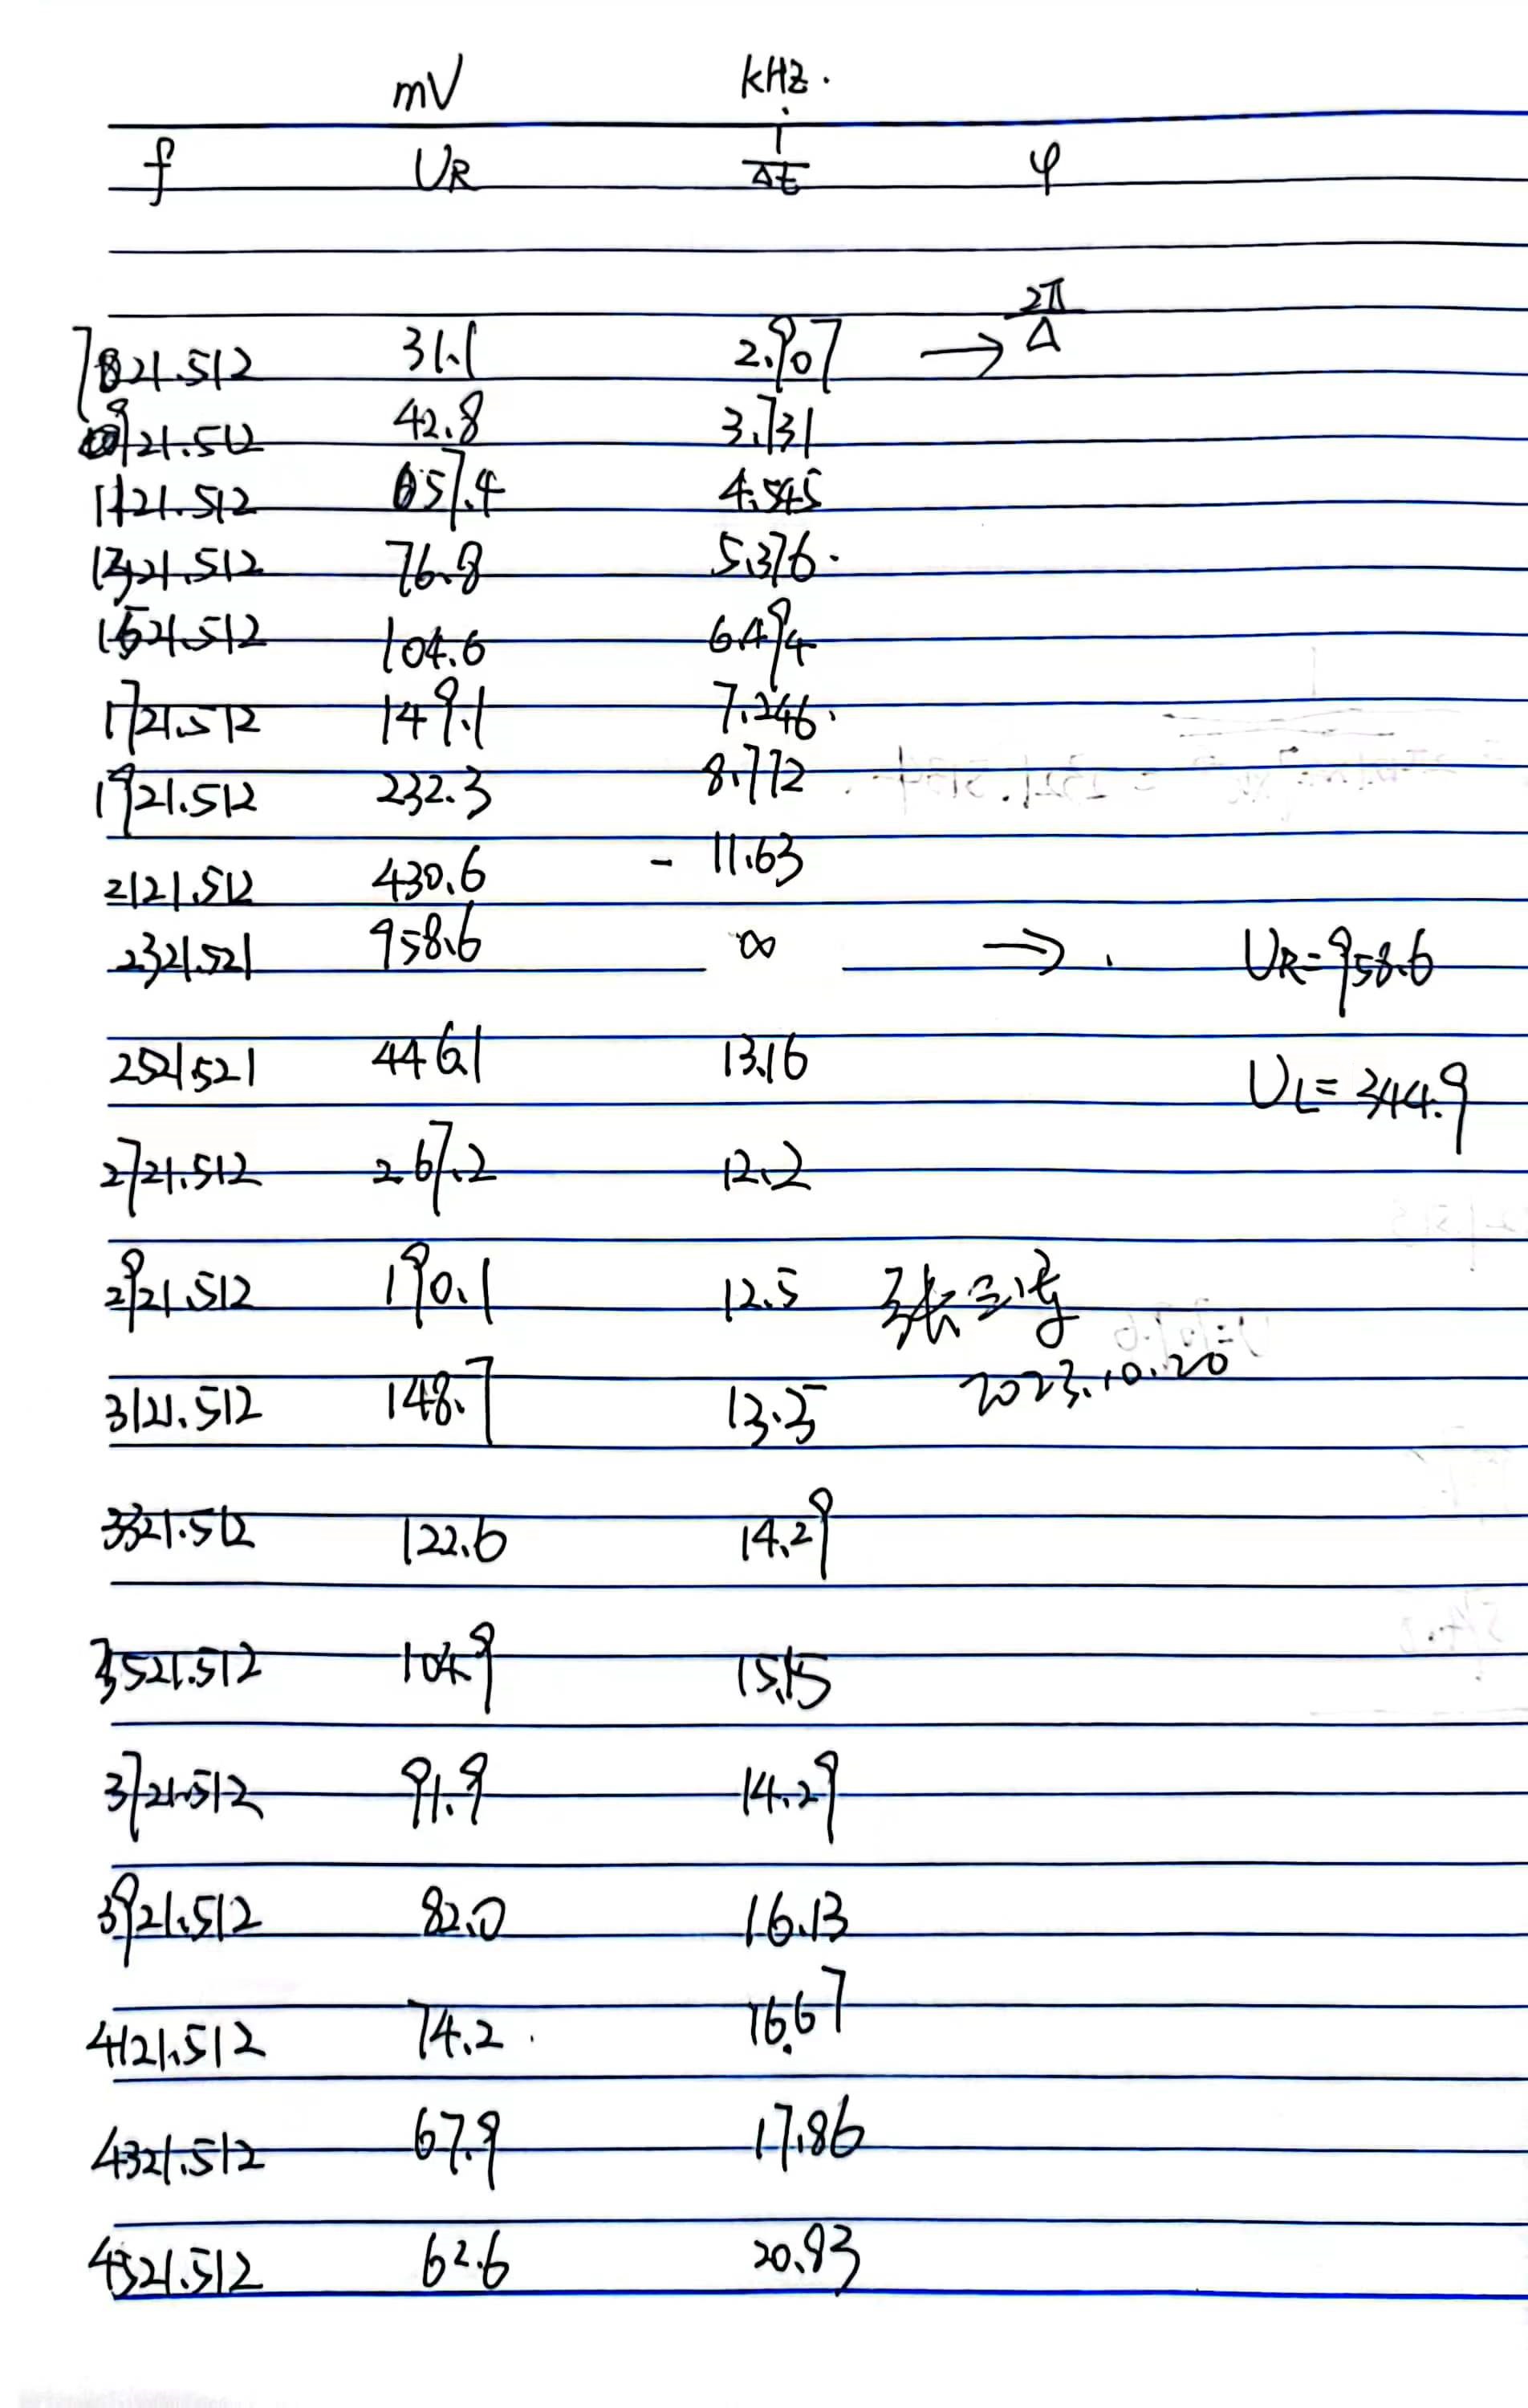 mV kHz.
f UR 1/Δt φ
721.512 31.1 2.907 → 2π/Δ
921.512 42.8 3.731
1121.512 57.4 4.545
1321.512 76.8 5.376.
1521.512 104.6 6.494
1721.512 149.1 7.246.
1921.512 232.3 8.772
2121.512 430.6 - 11.63
2321.521 958.6 ∞ → . UR=958.6
2521.521 446.1 13.16
UL=344.9
2721.512 267.2 12.2
2921.512 190.1 12.5
2023.10.20
3121.512 148.7
3321.512 122.6 14.29
3521.512 104.9 15.15
3721.512 91.9 14.29
3921.512 82.0 16.13
4121.512 74.2 . 16.67
4321.512 67.9 17.86
4521.512 62.6 20.83